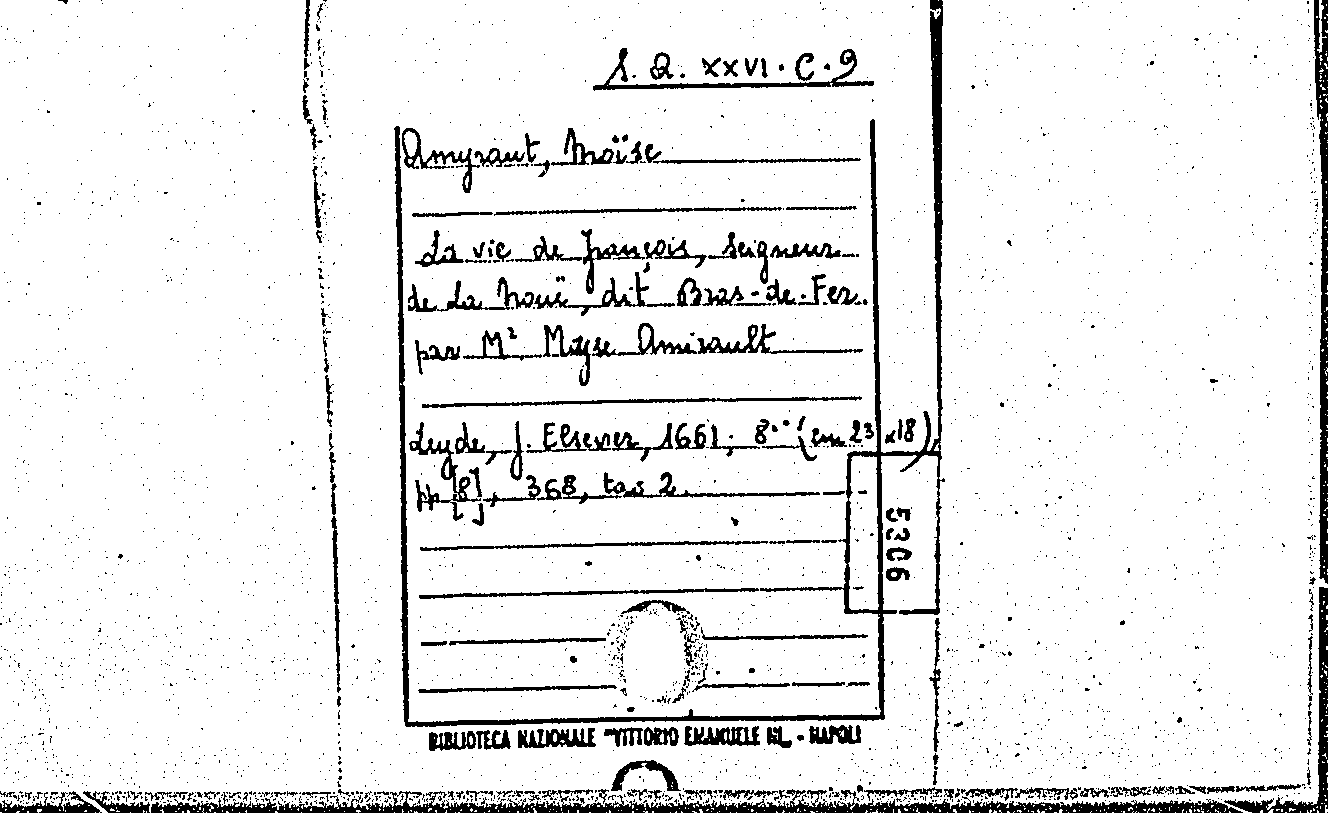 S. Q. XXVI. C. 9
Amyraut, Moïse
La vie de François, Seigneur
de La Nouë, dit Bras-de-Fer.
par M² Moyse Amirault
Leyde, J. Elsevier, 1661; 8°° (cm 23x18),
pp [8], 368, tas 2.
5306
BIBLIOTECA NAZIONALE "VITTORIO EMANUELE III„ - NAPOLI